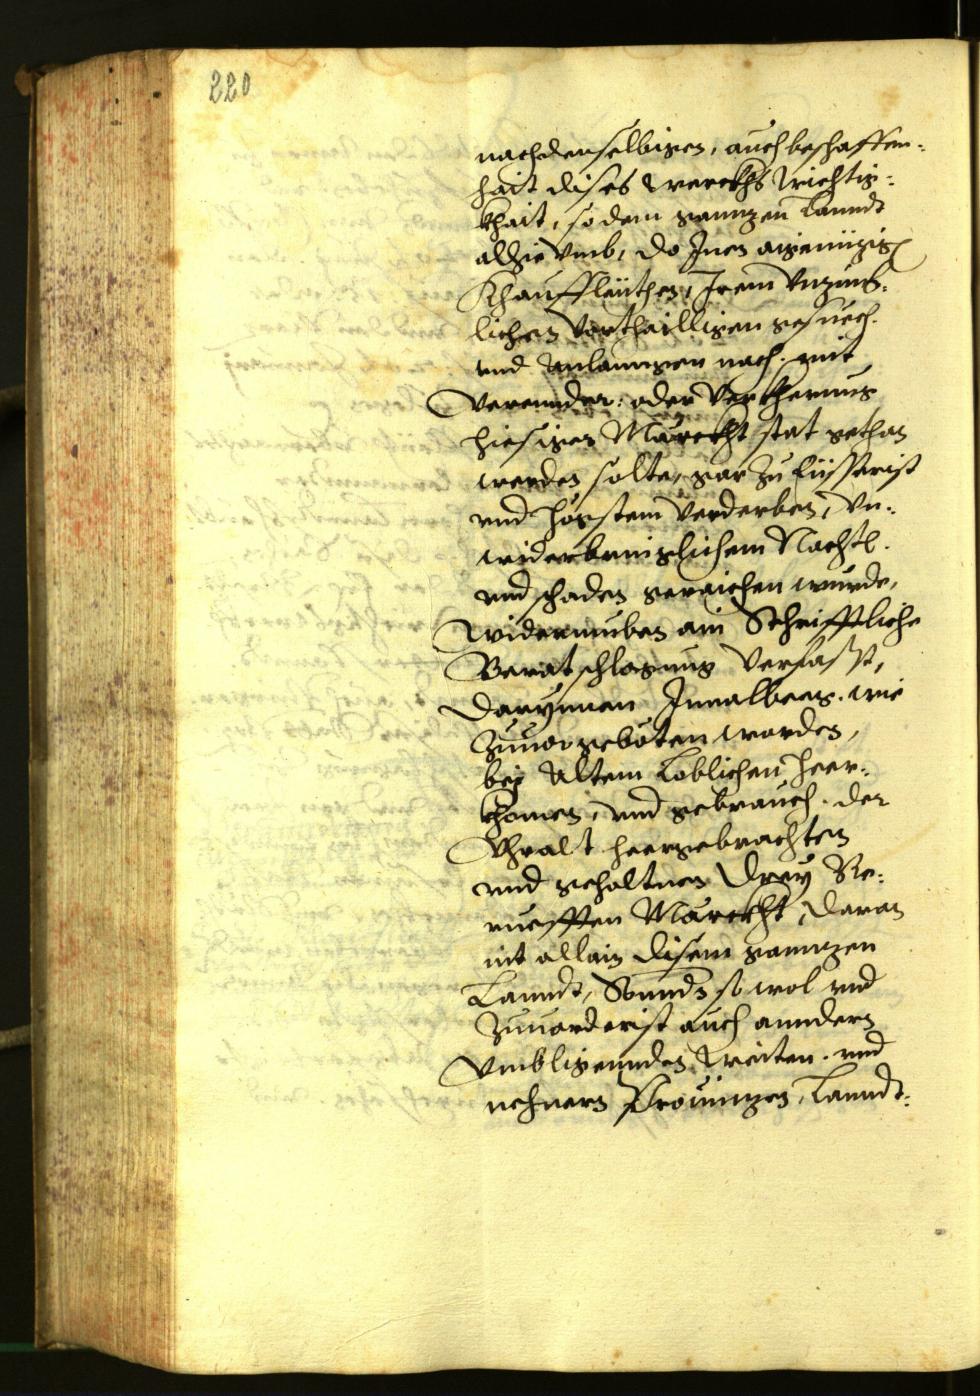 220
nach derselbigen, auch beschaffen-
hait dises werckhs wichtig-
khait, so dem ganntzen Lanndt
alhie vmb, do Inen aigennüzig
Khauffleüthen, Irem vnzimb-
lichen vorthailligen gesuech
vnd anlanngen nach. mit
verennder: oder verkherung
hiesigen Märckht stat gethan
werden solte, gar zu eüsserist
vnd högstem verderben, vn-
widerbringlichem Nachtl.
vnd schaden geraichen wurde,
widerumben ain Schrifftliche
Beratschlagung verfasst,
darynnen Innalbeeg. wie
zuuor gebeten worden,
bej altem Loblichen heer-
khomen, vnd gebrauch. der
Vhralt heergebrachten
vnd gehaltnen Drey Be-
rüefften Märckht, daran
nit allain disem ganntzen
Lanndt, Sonnder so wol vnd
zuuorderist auch anndern
vmbligennden weiten. vnd
nehnern Prouinzen, Lanndt-